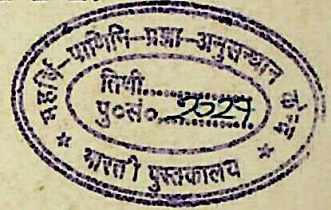 महर्षि-पाणिनि-प्रज्ञा-अनुसन्धान केन्द्र
तिथी..................
पु०सं०...2327...........
* भारती पुस्तकालय *